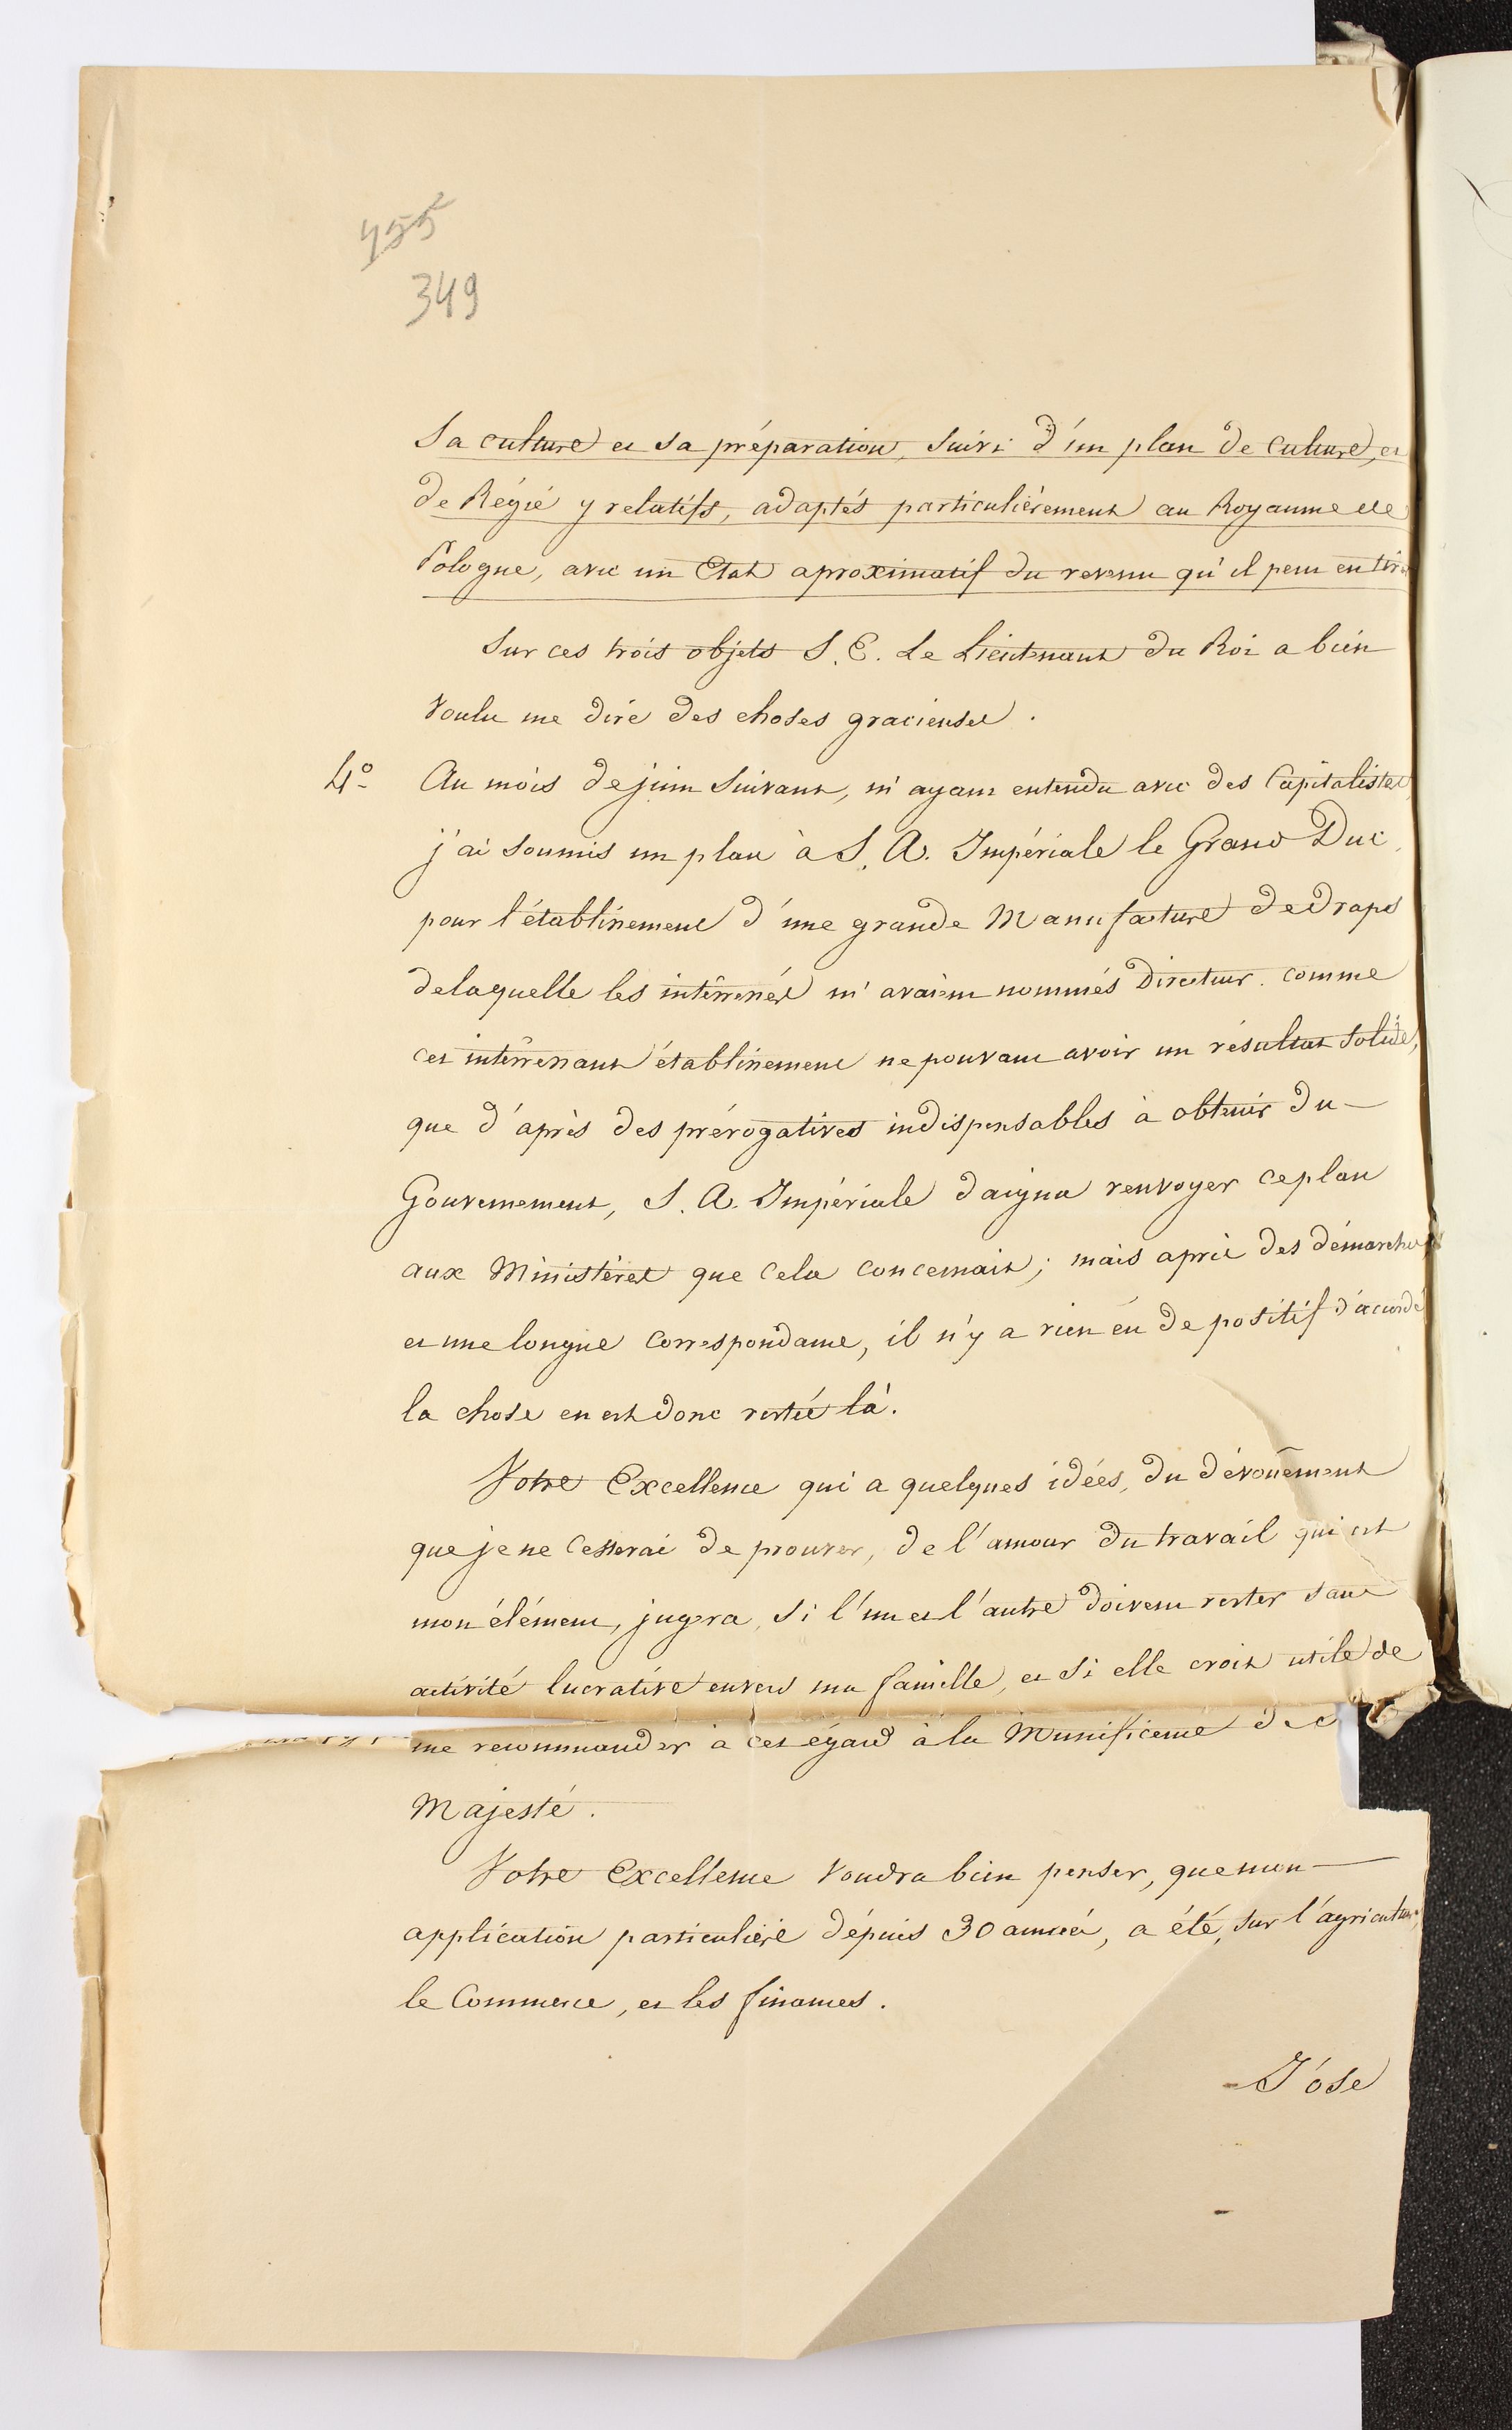 455
349
Sa culture et sa préparation, suivi d'un plan de culture, et
de Régie y relatifs, adaptés particulièrement au Royaume de
Pologne, avec un Etat aproximatif du revenu qu'il peut en tirer
Sur ces trois objets S. E. Le Lieutenant du Roi a bien
voulu me dire des choses gracieuses.
4° Au mois de juin suivant, m'ayant entendu avec des Capitalistes
j'ai soumis un plan à S. A. Impériale le Grand Duc,
pour l'établissement d'une grande Manufacture de draps
de laquelle les intérressés m'avaient nommés Directeur. comme
cet intérressant établissement ne pouvant avoir un résultat solide,
que d'après des prérogatives indispensables à obtenir du
Gouvernement, S. A. Impériale daigna renvoyer ce plan
aux Ministères que cela concernait; mais après des démarches
et une longue correspondance, il n'y a rien eu de positif d'accordé
la chose en est donc restée là.
Votre Excellence qui a quelques idées, du dévoûement
que je ne cesserai de prouver, de l'amour du travail qui est
mon élément, jugera, si l'un et l'autre doivent rester sans
activité lucrative envers ma famille, et si elle croit utile de
me recommander à cet égard à la Munificence de
Majesté.
Votre Excellence voudra bien penser, que mon
application particulière dépuis 30 années, a été, sur l'agriculture
le Commerce, et les finances.
J'ose